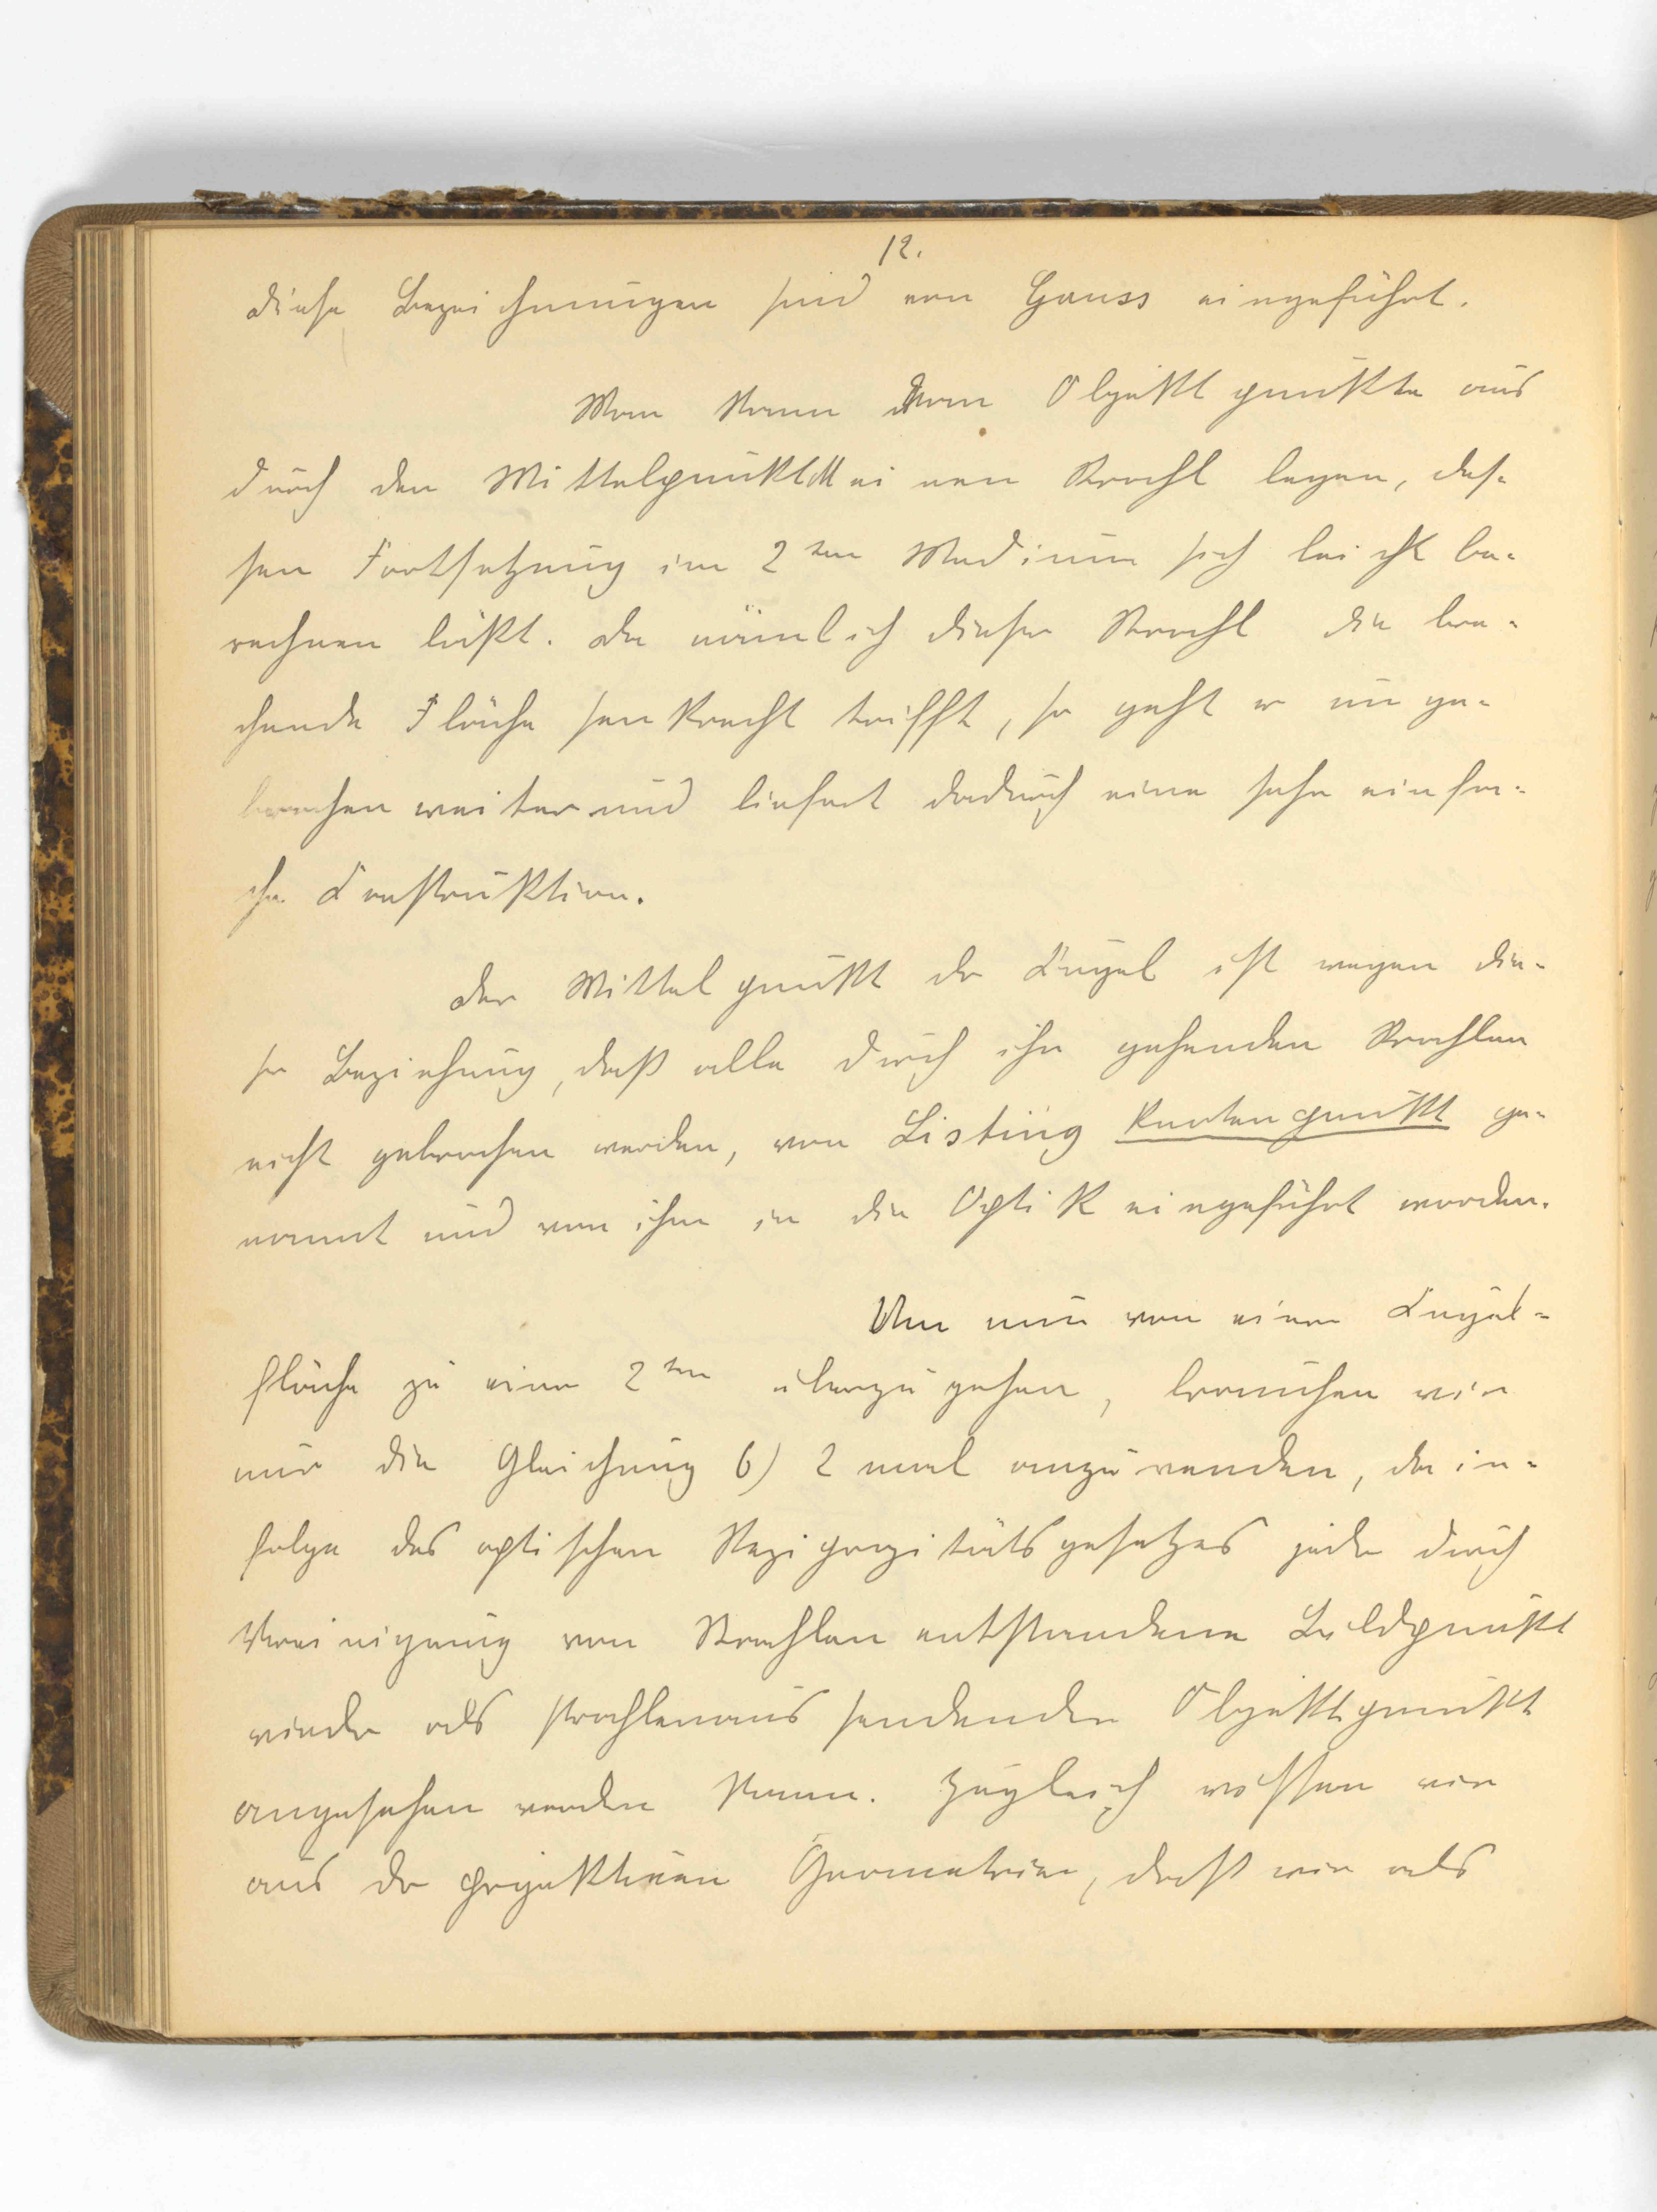 12.
Diese Bezeichnungen sind von Gauss eingeführt.
Man kann vom Objektpunkte aus
durch den Mittelpunkt M einen Strahl legen, des-
sen Fortsetzung im 2ten Medium sich leicht be-
rechnen läßt. Da nämlich dieser Strahl die bre-
chende Fläche senkrecht trifft, so geht er unge-
brochen weiter und liefert dadurch eine sehr einfa-
che Construktion.
Der Mittelpunkt der Kugel ist wegen die-
ser Beziehung, daß alle durch ihn gehenden Strahlen
nicht gebrochen werden, von Listing Knotenpunkt ge-
nannt und von ihm in die Optik eingeführt worden.
Um nun von einer Kugel-
fläche zu einer 2ten überzugehen, brauchen wir
nur die Gleichung 6) 2 mal anzuwenden, da in-
folge des optischen Reziprozitätsgesetzes jeder durch
Vereinigung von Strahlen entstandene Bildpunkt
wieder als strahlenaussendender Objektpunkt
angesehen werden kann. Zugleich wissen wir
aus der projektiven Geometrie, daß wir als